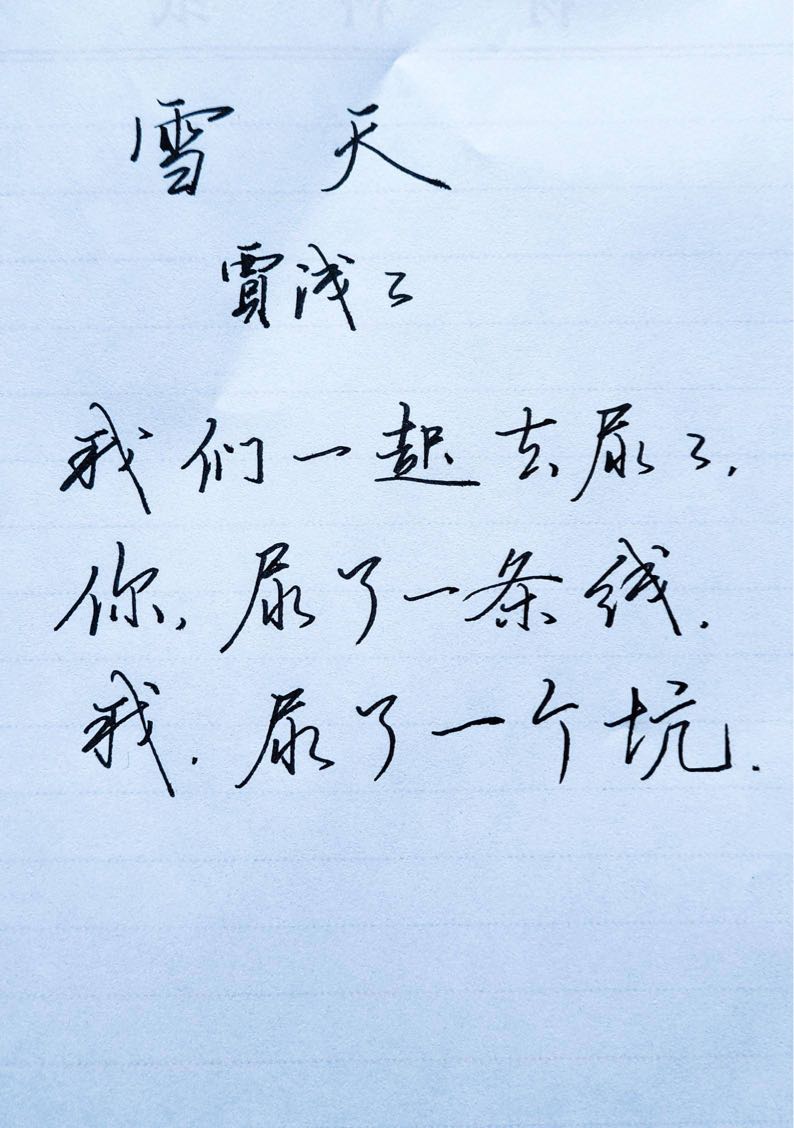 雪 天
賈浅々
我们一起去尿々,
你,尿了一条线.
我.尿了一个坑.